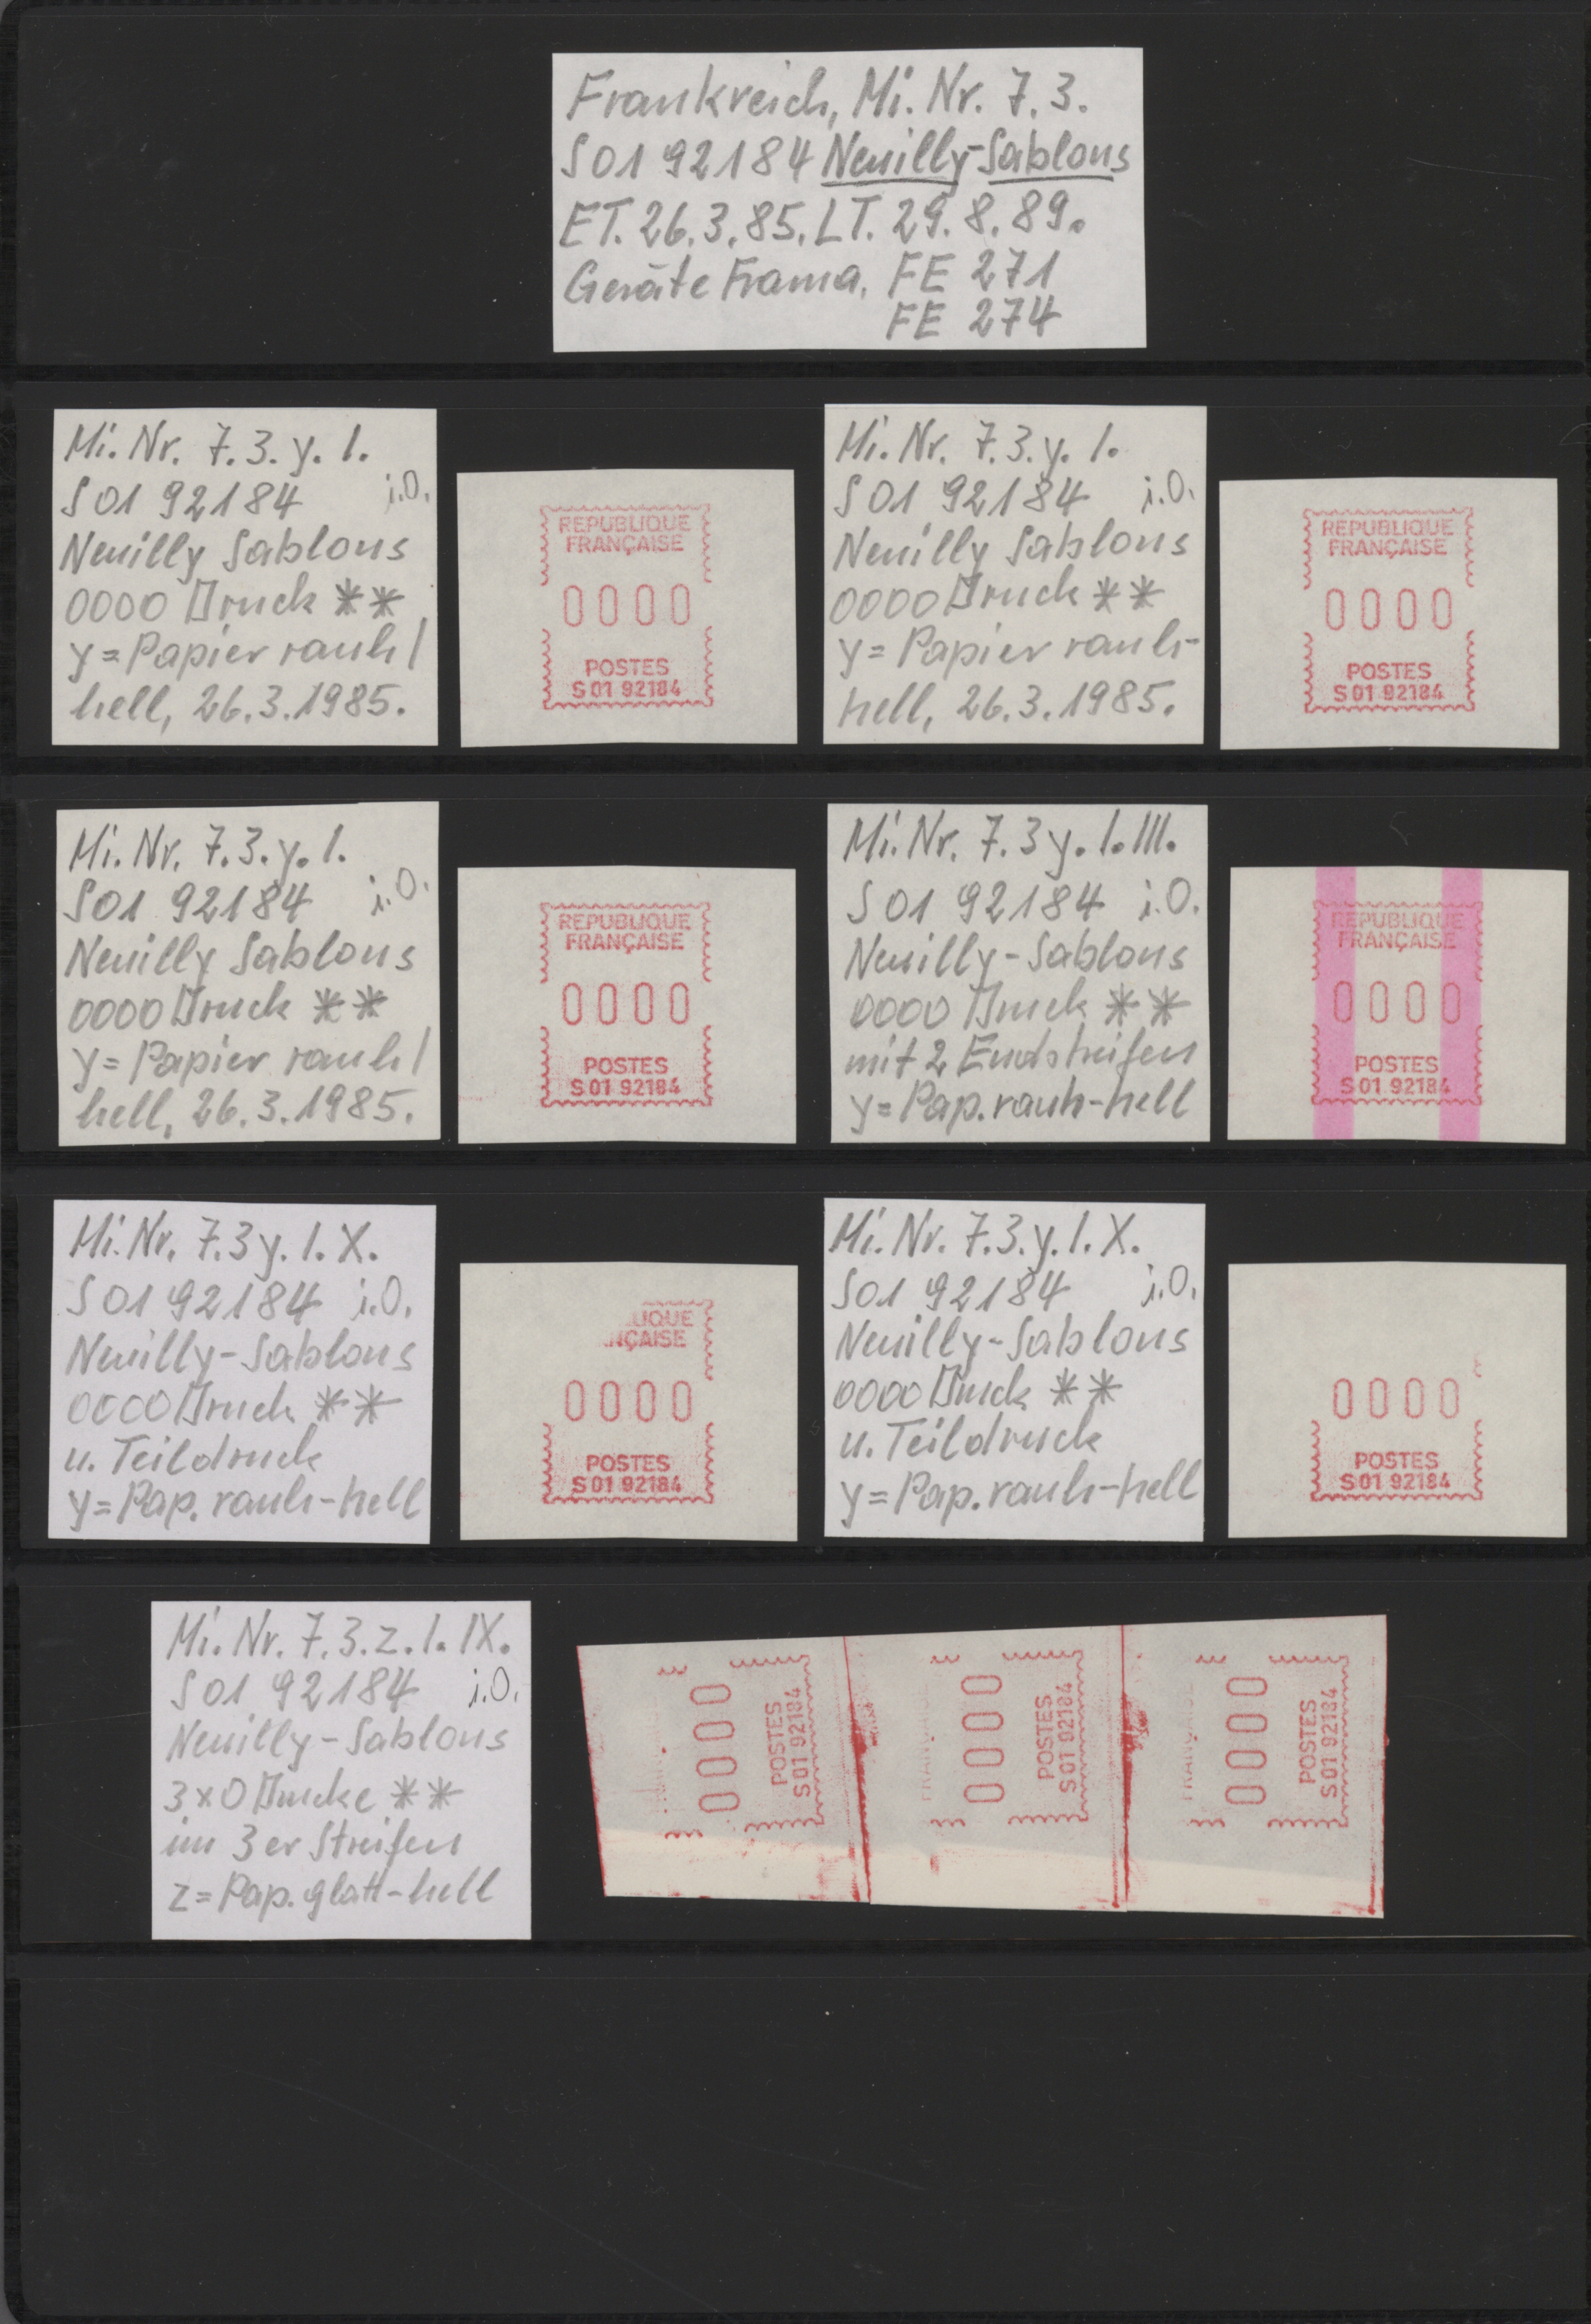 Frankreich, Mi. Nr. 7.3.
S01 92184 Neuilly-Sablons
ET. 26.3.85. LT. 29.8.89.
Geräte Frama, FE 271
FE 274
Mi. Nr. 7.3.y.I.
S01 92184 i.O.
Neuilly Sablons
0000 Druck **
y=Papier rauh/
hell, 26.3.1985.
REPUBLIQUE
FRANÇAISE
0000
POSTES
S 01 92184
Mi. Nr. 7.3.y.I.
S01 92184 i.O.
Neuilly Sablons
0000 Druck **
y=Papier rauh-
hell, 26.3.1985.
REPUBLIQUE
FRANÇAISE
0000
POSTES
S 01 92184
Mi. Nr. 7.3.y.I.
S01 92184 i.O.
Neuilly Sablons
0000 Druck **
y=Papier rauh/
hell, 26.3.1985.
REPUBLIQUE
FRANÇAISE
0000
POSTES
S 01 92184
Mi. Nr. 7.3y.I.III.
S01 92184 i.O.
Neuilly-Sablons
0000 Druck **
mit 2 Endstreifen
y=Pap. rauh-hell
REPUBLIQUE
FRANÇAISE
0000
POSTES
S 01 92184
Mi. Nr. 7.3y.I.X.
S01 92184 i.O.
Neuilly-Sablons
0000 Druck **
u. Teildruck
y=Pap. rauh-hell
LIQUE
NÇAISE
0000
POSTES
S 01 92184
Mi. Nr. 7.3.y.I.X.
S01 92184 i.O.
Neuilly-Sablons
0000 Druck **
u. Teildruck
y=Pap. rauh-hell
0000
POSTES
S 01 92184
Mi. Nr. 7.3.z.I.IX.
S01 92184 i.O.
Neuilly-Sablons
3x0 Drucke **
im 3er Streifen
z=Pap. glatt-hell
0000
POSTES
S 01 92184
FRANÇAISE
0000
POSTES
S 01 92184
FRANÇAISE
0000
POSTES
S 01 92184